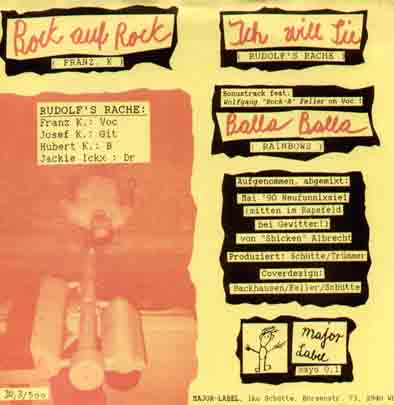 Rock auf Rock
( FRANZ. K )
RUDOLF'S RACHE:
Franz K.: Voc
Josef K.: Git
Hubert K.: B
Jackie Ickx : Dr
30,3/500
Ich will Sie
( RUDOLF'S RACHE )
Bonustrack feat.
Wolfgang "Rock-A" Feller on Voc !
Balla Balla
( RAINBOWS )
Aufgenommen, abgemixt:
Mai '90 Neufunnixsiel
(mitten im Rapsfeld
bei Gewitter!)
von "Shicken" Albrecht
Produziert: Schütte/Trümmer
Coverdesign:
Backhausen/Feller/Schütte
major
Label
mayo 0.1
MAJOR-LABEL, Iko Schütte, Börsenstr. 73, 2940